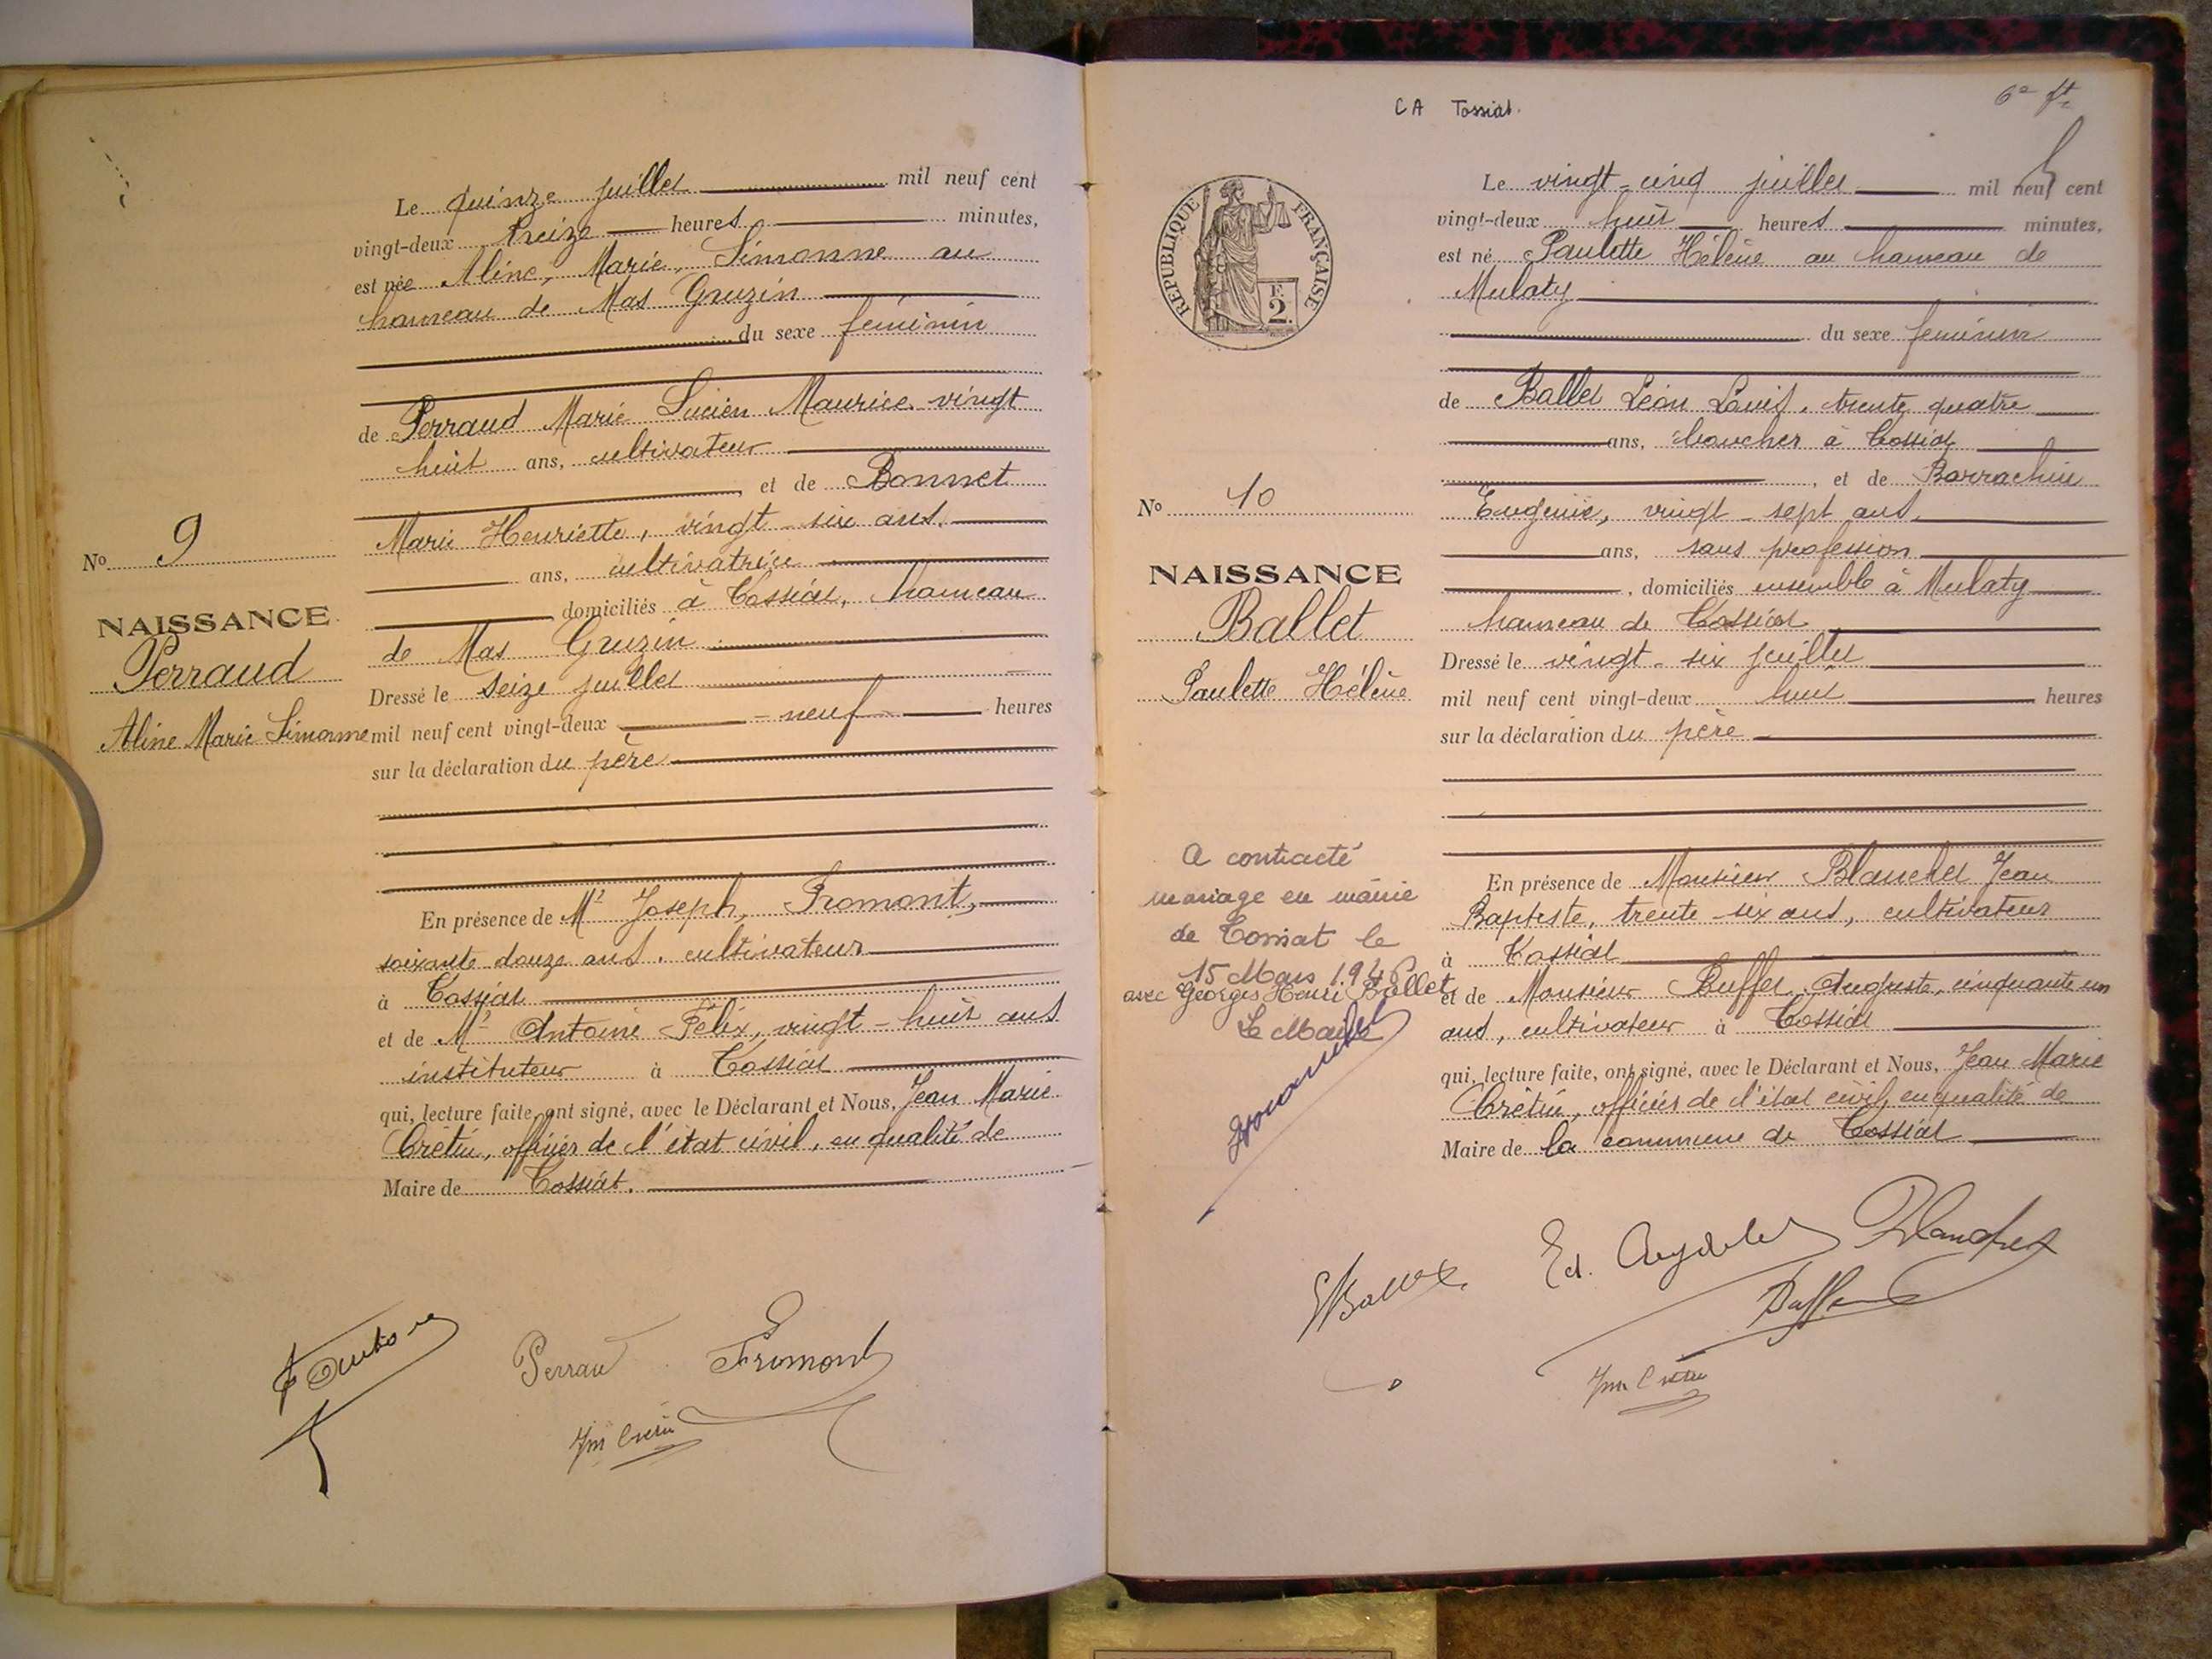 Le quinze juillet mil neuf cent
vingt-deux treize heures minutes,
est née Aline, Marie, Simonne au
hameau de Mas Gruzin
du sexe féminin
de Perraud Marie Lucien Maurice vingt
huit ans, cultivateur
et de Bonnet
Marie Henriette, vingt-six ans,
ans, cultivatrice
domiciliés à Tossiat, hameau
de Mas Gruzin
Dressé le seize juillet
mil neuf cent vingt-deux neuf heures
sur la déclaration du père
En présence de Mr Joseph, Fromont,
soixante douze ans, cultivateur
à Tossiat
et de Mr Antoine Félix, vingt-huit ans
instituteur à Tossiat
qui, lecture faite, ont signé, avec le Déclarant et Nous, Jean Marie
Crétin, officier de l'état civil, en qualité de
Maire de Tossiat.
No 9
NAISSANCE
Perraud
Aline Marie Simonne
Perraud
Fromont
Jm Crétin
CA Tossiat.
6e ft
RÉPUBLIQUE FRANÇAISE
F.
2.
Le vingt-cinq juillet mil neuf cent
vingt-deux huit heures minutes,
est né Paulette Hélène au hameau de
Mulaty
du sexe féminin
de Ballet Léon Louis, trente quatre
ans, boucher à Tossiat
, et de Barrachin
Eugénie, vingt-sept ans,
ans, sans profession
, domiciliés ensemble à Mulaty
hameau de Tossiat
Dressé le vingt-six juillet
mil neuf cent vingt-deux huit heures
sur la déclaration du père
En présence de Monsieur Blanchet Jean
Baptiste, trente-six ans, cultivateur
à Tossiat
et de Monsieur Buffet Auguste, cinquante un
ans, cultivateur à Tossiat
qui, lecture faite, ont signé, avec le Déclarant et Nous, Jean Marie
Crétin, officier de l'état civil, en qualité de
Maire de la commune de Tossiat
No 10
NAISSANCE
Ballet
Paulette Hélène
A contracté
mariage en mairie
de Tossiat le
15 Mars 1946
avec Georges Henri Ballet
Le Maire
Blanchet
Buffet
Jm Crétin